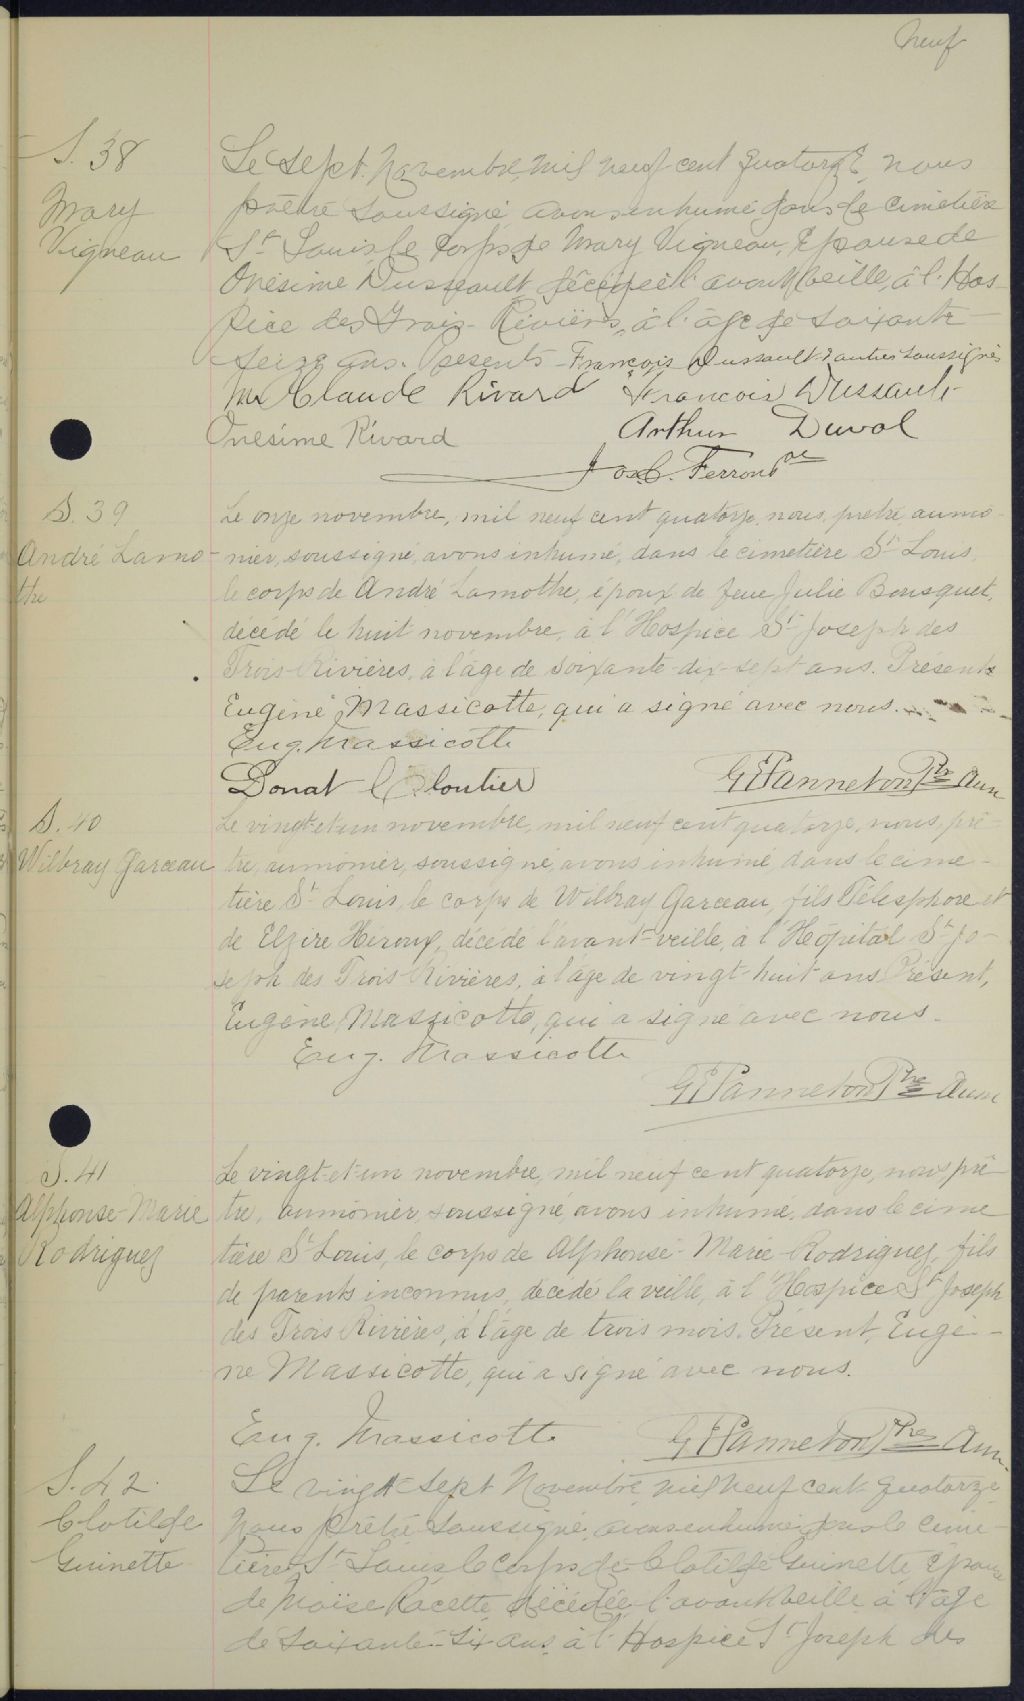 neuf
S. 38
Mary
Vigneau
Le sept Novembre, mil neuf cent quatorze, nous
prêtre soussigné, avons inhumé dans le cimetière
St Louis, le corps de Mary Vigneau, Epouse de
Onésime Dussault décédée l'avant veille, à l'Hos-
pice des Trois-Rivières, à l'âge de soixante
seize ans. Présents François Dussault & autres soussignés
Mr Claude Rivard François Dussault
Onésime Rivard Arthur Duval
Jos. C. Ferron Ptre
S. 39
André Lamo-
the
Le onze novembre, mil neuf cent quatorze, nous, prêtre, aumô-
nier, soussigné, avons inhumé, dans le cimetière St Louis,
le corps de André Lamothe, époux de feue Julie Bousquet,
décédé le huit novembre, à l'Hospice St Joseph des
Trois-Rivières, à l'âge de soixante-dix-sept ans. Présents
Eugène Massicotte, qui a signé avec nous.
Eug. Massicotte
Donat Cloutier G E Panneton Ptr Aum
S. 40
Wilbray Garceau
Le vingt-et-un novembre, mil neuf cent quatorze, nous, prê-
tre, aumônier, soussigné, avons inhumé, dans le cime-
tière St Louis, le corps de Wilbray Garceau, fils Télesphore et
de Elzire Héroux, décédé l'avant-veille, à l'Hôpital St Jo-
seph des Trois Rivières, à l'âge de vingt-huit ans. Présent,
Eugène Massicotte, qui a signé avec nous.
Eug. Massicotte
G E Panneton Ptre Aum
S. 41
Alphonse-Marie
Rodriguez
Le vingt-et-un novembre, mil neuf cent quatorze, nous prê-
tre, aumônier, soussigné, avons inhumé, dans le cime
tière St Louis, le corps de Alphonse-Marie-Rodriguez, fils
de parents inconnus, décédé la veille, à l'Hospice St Joseph
des Trois Rivières, à l'âge de trois mois. Présent, Eugè-
ne Massicotte, qui a signé avec nous.
Eug. Massicotte G E Panneton Ptre Aum.
S. 42.
Clotilde
Guinette
Le vingt-sept Novembre, mil neuf cent quatorze
Nous prêtre soussigné, avons inhumé dans le cime-
tière St Louis le corps de Clotilde Guinette, Epouse
de Moïse Racette, décédée l'avant veille à l'âge
de soixante-six ans, à l'Hospice St Joseph des